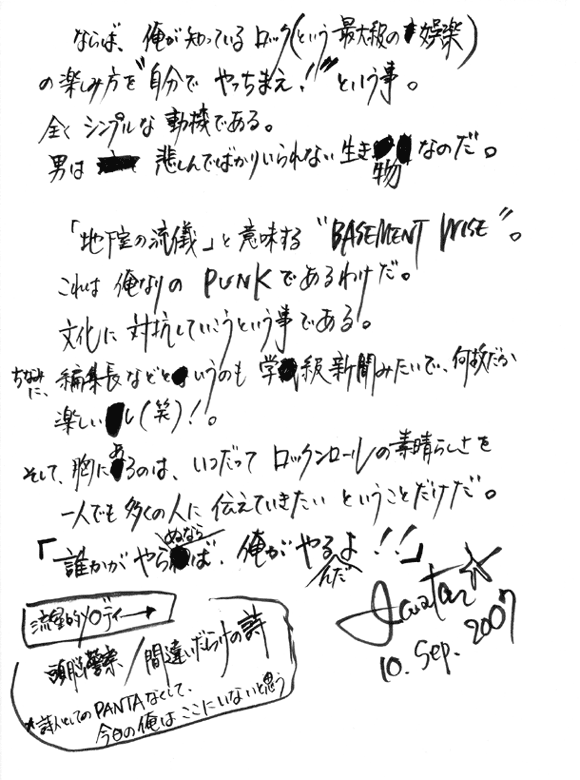 ならば、俺が知っているロック(という最大級の娯楽)
の楽しみ方を"自分で やっちまえ!"という事。
全くシンプルな動機である。
男は 悲しんでばかりいられない生き物なのだ。
「地下室の流儀」と意味する "BASEMENT WISE"。
これは俺なりの PUNKであるわけだ。
文化に対抗していこうという事である。
ちなみに、編集長などというのも 学級新聞みたいで、何故だか
楽しいし(笑)!。
そして、胸にあるのは、いつだって ロックンロールの素晴らしさを
一人でも多くの人に 伝えていきたい ということだけだ。
「誰かがやらぬならば、俺がやるんだよ!!」
10. Sep. 2007
流星的メロディー→
頭脳警察/間違いだらけの詩
*詩人としてのPANTAなくして、
今日の俺はここにいないと思う